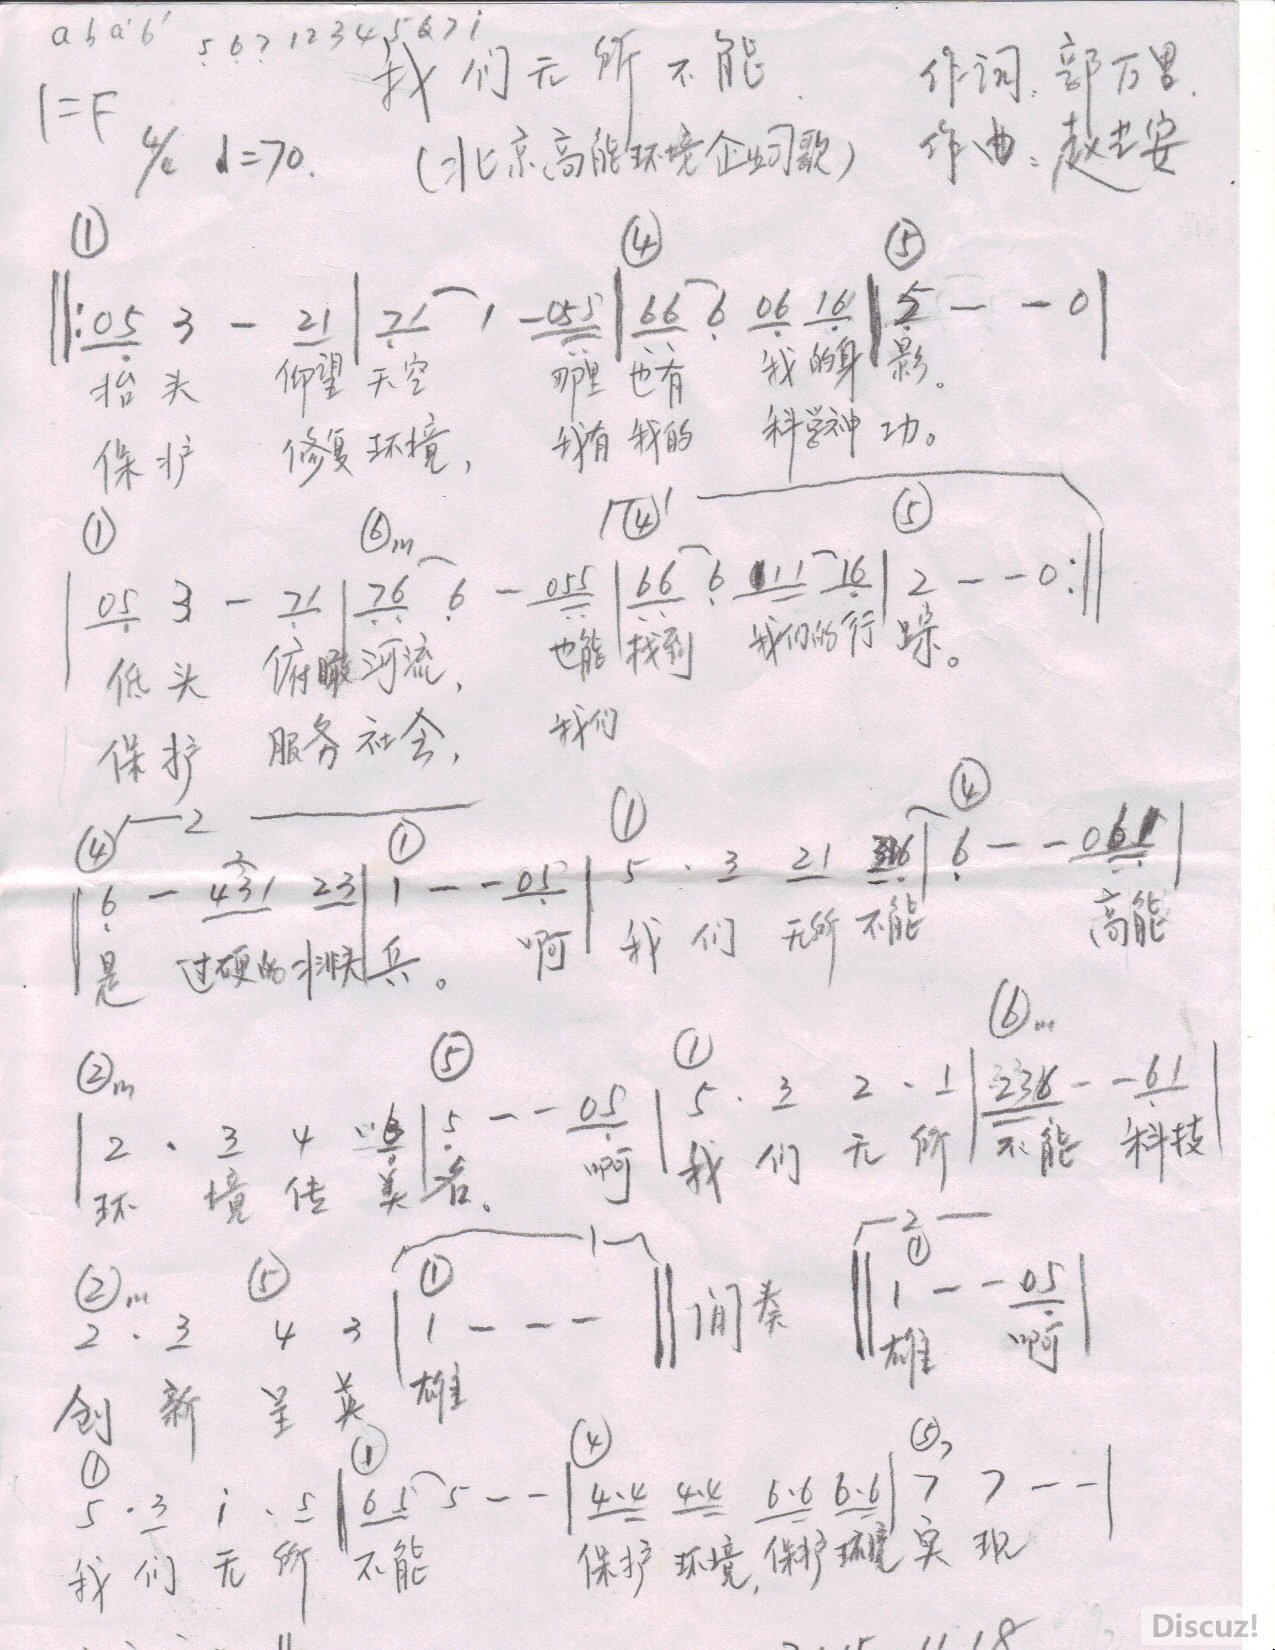 a b a' b'
5 6 7 1 2 3 4 5 6 7 i
我们无所不能
作词:郭万里.
1=F
4/4 ♩=70.
(北京高能环境企业司歌)
作曲:赵 安
① ④ ⑤
‖: 05 3 - 21 | 71 1 - 055 | 66 6 06 16 | 5 - - 0 |
抬头 仰望天空 哪里也有 我的身影。
保护 修复环境, 我有我的 科学神功。
① ⑥m ④ ⑤
| 05 3 - 71 | 76 6 - 055 | 66 6 111 16 | 2 - - 0 :‖
低头 俯瞰河流, 也能找到 我们的行踪。
保护 服务社会, 我们
2
④ ① ① ④
‖ 6 - 431 23 | 1 - - 05 | 5 · 3 21 | 6 - - 0 |
是 过硬的排头兵。 啊 我们无所不能 高能
②m ⑤ ① ⑥m
| 2 · 3 4 6 | 5 - - 05 | 5 · 3 2 · 1 | 236 - - 61 |
环境传美名。 啊 我们无所不能 科技
1 2
②m ⑤ ① ①
2 · 3 4 3 | 1 - - - ‖ 间奏 ‖ 1 - - 05 |
创新呈英雄 雄 啊
① ① ④ ⑤7
5 · 3 i · 5 | 65 5 - - | 4·4 4·4 6·6 6·6 | 7 7 - - |
我们无所不能 保护环境,保护环境实现
Discuz!